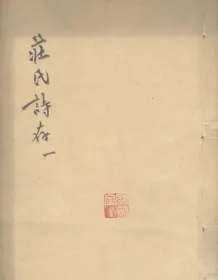 莊氏詩存一